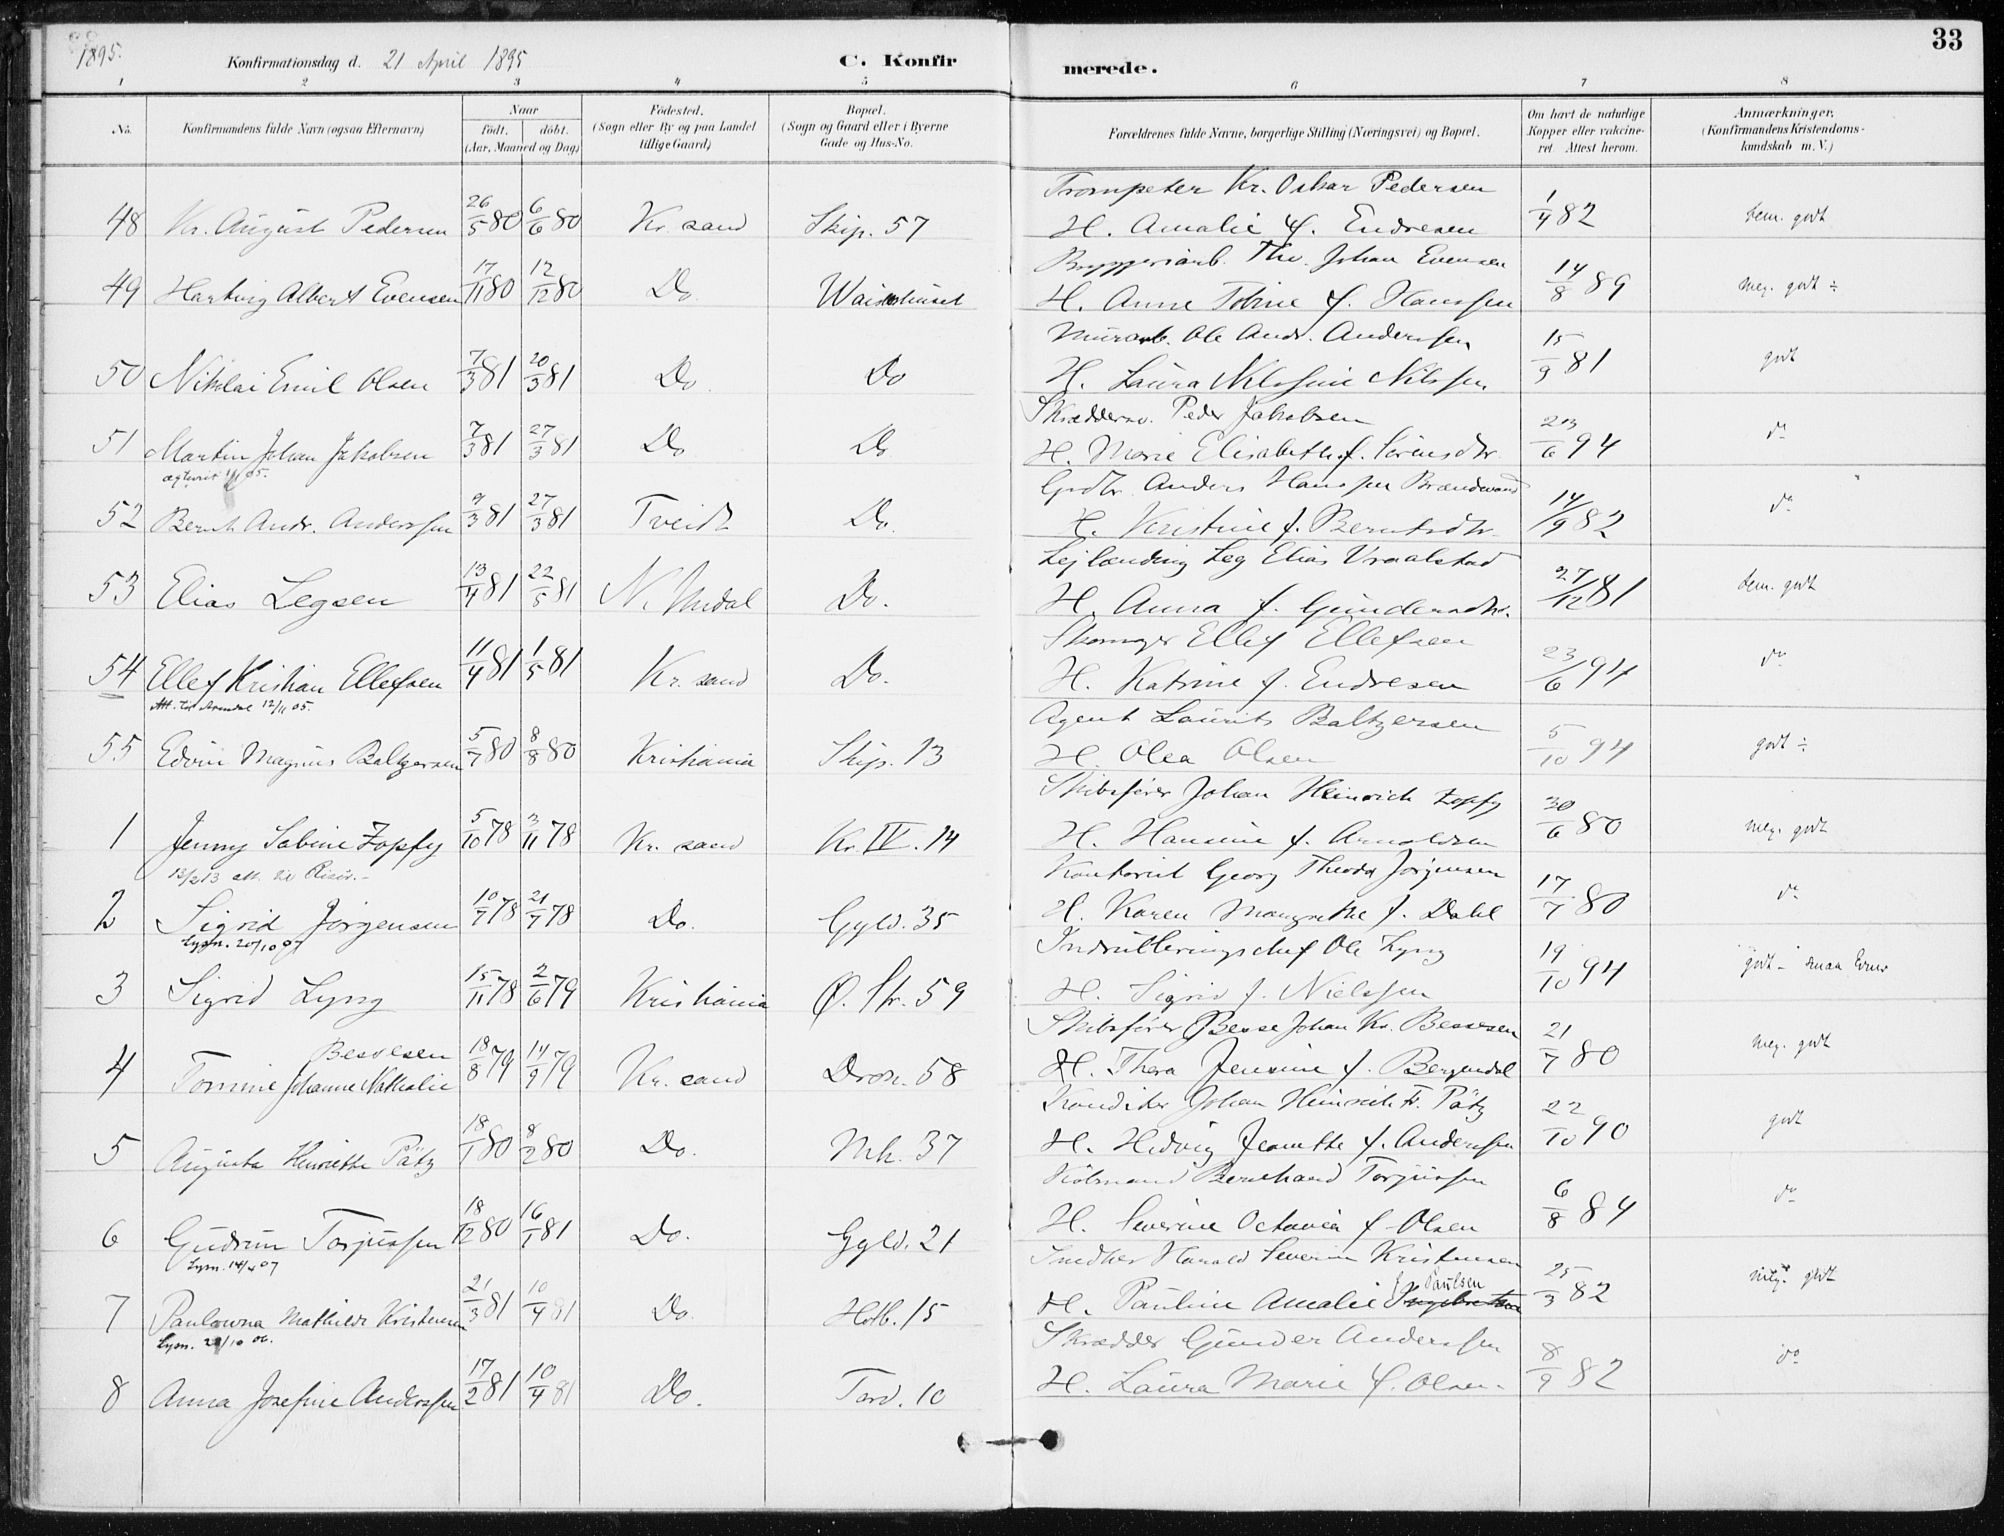 1895.
33
Konfirmationsdag d. 21 April 1895
C. Konfirmerede.
1 2 3 4 5 6 7 8
No. Konfirmandens fulde Navn (ogsaa Efternavn) Naar födt. döbt. (Aar, Maaned og Dag) Födested. (Sogn eller By og paa Landet tillige Gaard) Bopæl. (Sogn og Gaard eller i Byerne Gade og Hus-No. Forældrenes fulde Navne, borgerlige Stilling (Næringsvei) og Bopæl. Om havt de naturlige Kopper eller vakcineret Attest herom. Anmærkninger. (Konfirmandens Kristendomskundskab m. V.)
Trompeter Kr. Oskar Pedersen
48 Kr. August Pedersen 26/5 80 6/6 80 Kr. sand Skip. 57 H. Amalie f. Endresen 1/4 82 tem. godt
Bryggeriarb. Tho. Johan Evensen
49 Hartvig Albert Evensen 17/11 80 12/12 80 Do. Waisenhuset H. Anne Tobine f. Hanssen 14/8 89 meg. godt ÷
Murarb. Ole Andr. Anderssen
50 Nikolai Emil Olsen 7/3 81 20/3 81 Do. Do H. Laura Nilssine Nilssen 15/9 81 godt
Skrædderm. Peder Jakobsen
51 Martin Johan Jakobsen 7/3 81 27/3 81 Do Do H. Marie Elisabeth f. Sörensdtr. 23/6 94 do
Grdbr. Anders Hanssen Brændevand
52 Bernt Andr. Anderssen 9/3 81 27/3 81 Tveidt Do. H. Kristine f. Berntsdtr. 14/9 82 do
Lejlænding Leg Elias Vraalstad
53 Elias Legsen 13/4 81 22/5 81 N. Undal Do. H. Anna f. Gundersdtr. 27/12 81 tem. godt
Skomager Ellef Ellefsen
54 Ellef Kristian Ellefsen 11/4 81 1/5 81 Kr. sand Do. H. Katrine f. Endresen 23/6 94 do
Att. til Arendal 12/11 05.
Agent Laurits Baltzersen
55 Edvin Magnus Baltzersen 5/7 80 8/8 80 Kristiania Skip. 13 H. Olea Olsen 5/10 94 godt ÷
Skibsförer Johan Heinrich Zopfy
1 Jenny Sabine Zopfy 5/10 78 3/11 78 Kr. sand Kr. IV. 14 H. Hansine f. Arnoldsen 30/6 80 meg. godt
13/2 13 att. til Risör. -
Kontorist Georg Theodor Jörgensen
2 Sigrid Jörgensen 10/7 78 21/7 78 Do. Gyld. 35 H. Karen Margrethe f. Dahl 17/7 80 do
Lysn. 20/10 07
Indrulleringschef Ole Lyng
3 Sigrid Lyng 15/11 78 2/6 79 Kristiania Ø. Str. 59 H. Sigrid f. Nielssen 19/10 94 godt -
Skibsförer Besse Johan Kr. Bessesen
Bessesen
4 Tomine Johanne Nathalie 18/8 79 14/9 79 Kr. sand Dron. 58 H. Thora Jensine f. Bergendal 21/7 80 meg. godt
Konditor Johan Heinrich Fr. Pätz
5 Augusta Henriette Pätz 18/1 80 8/2 80 Do. Mk. 37 H. Hedvig Jeanette f. Anderssen 22/10 90 godt
Kiöbmand Bernhard Torjussen
6 Gudrun Torjussen 18/12 80 16/1 81 Do. Gyld. 21 H. Severine Octavia f. Olsen 6/8 84 do
Lysn. 14/4 07
Snedker Harald Severin Kristensen
7 Paulowna Mathilde Kristensen 21/3 81 10/4 81 Do. Holb. 15 H. Pauline Amalie f. Paulsen 25/3 82 meg. godt
Lysn. 21/10 06.
Skrædder Gunder Anderssen
8 Anna Josefine Anderssen 17/2 81 10/4 81 Do. Tord. 10 H. Laura Marie f. Olsen. 8/9 82 do